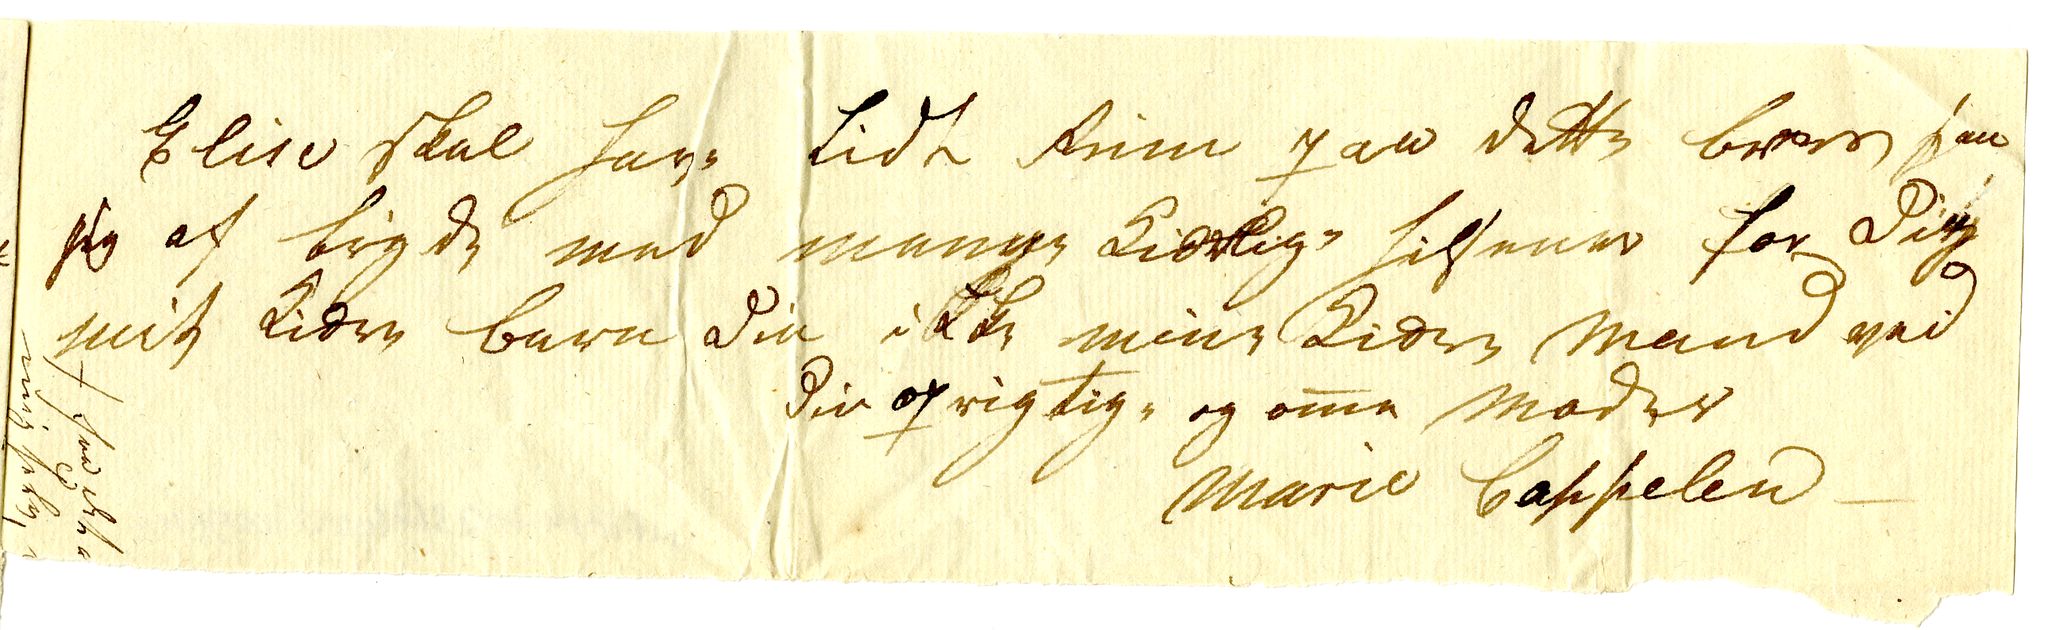 Elise skal have Lidt Rum paa dette brev saa
jeg af bryde med mange Kierlige hilsener for Dig
mit Kiere barn Din ikke mine Kiere Mand
Din oprigtige og ømme Moder
Marie Cappelen